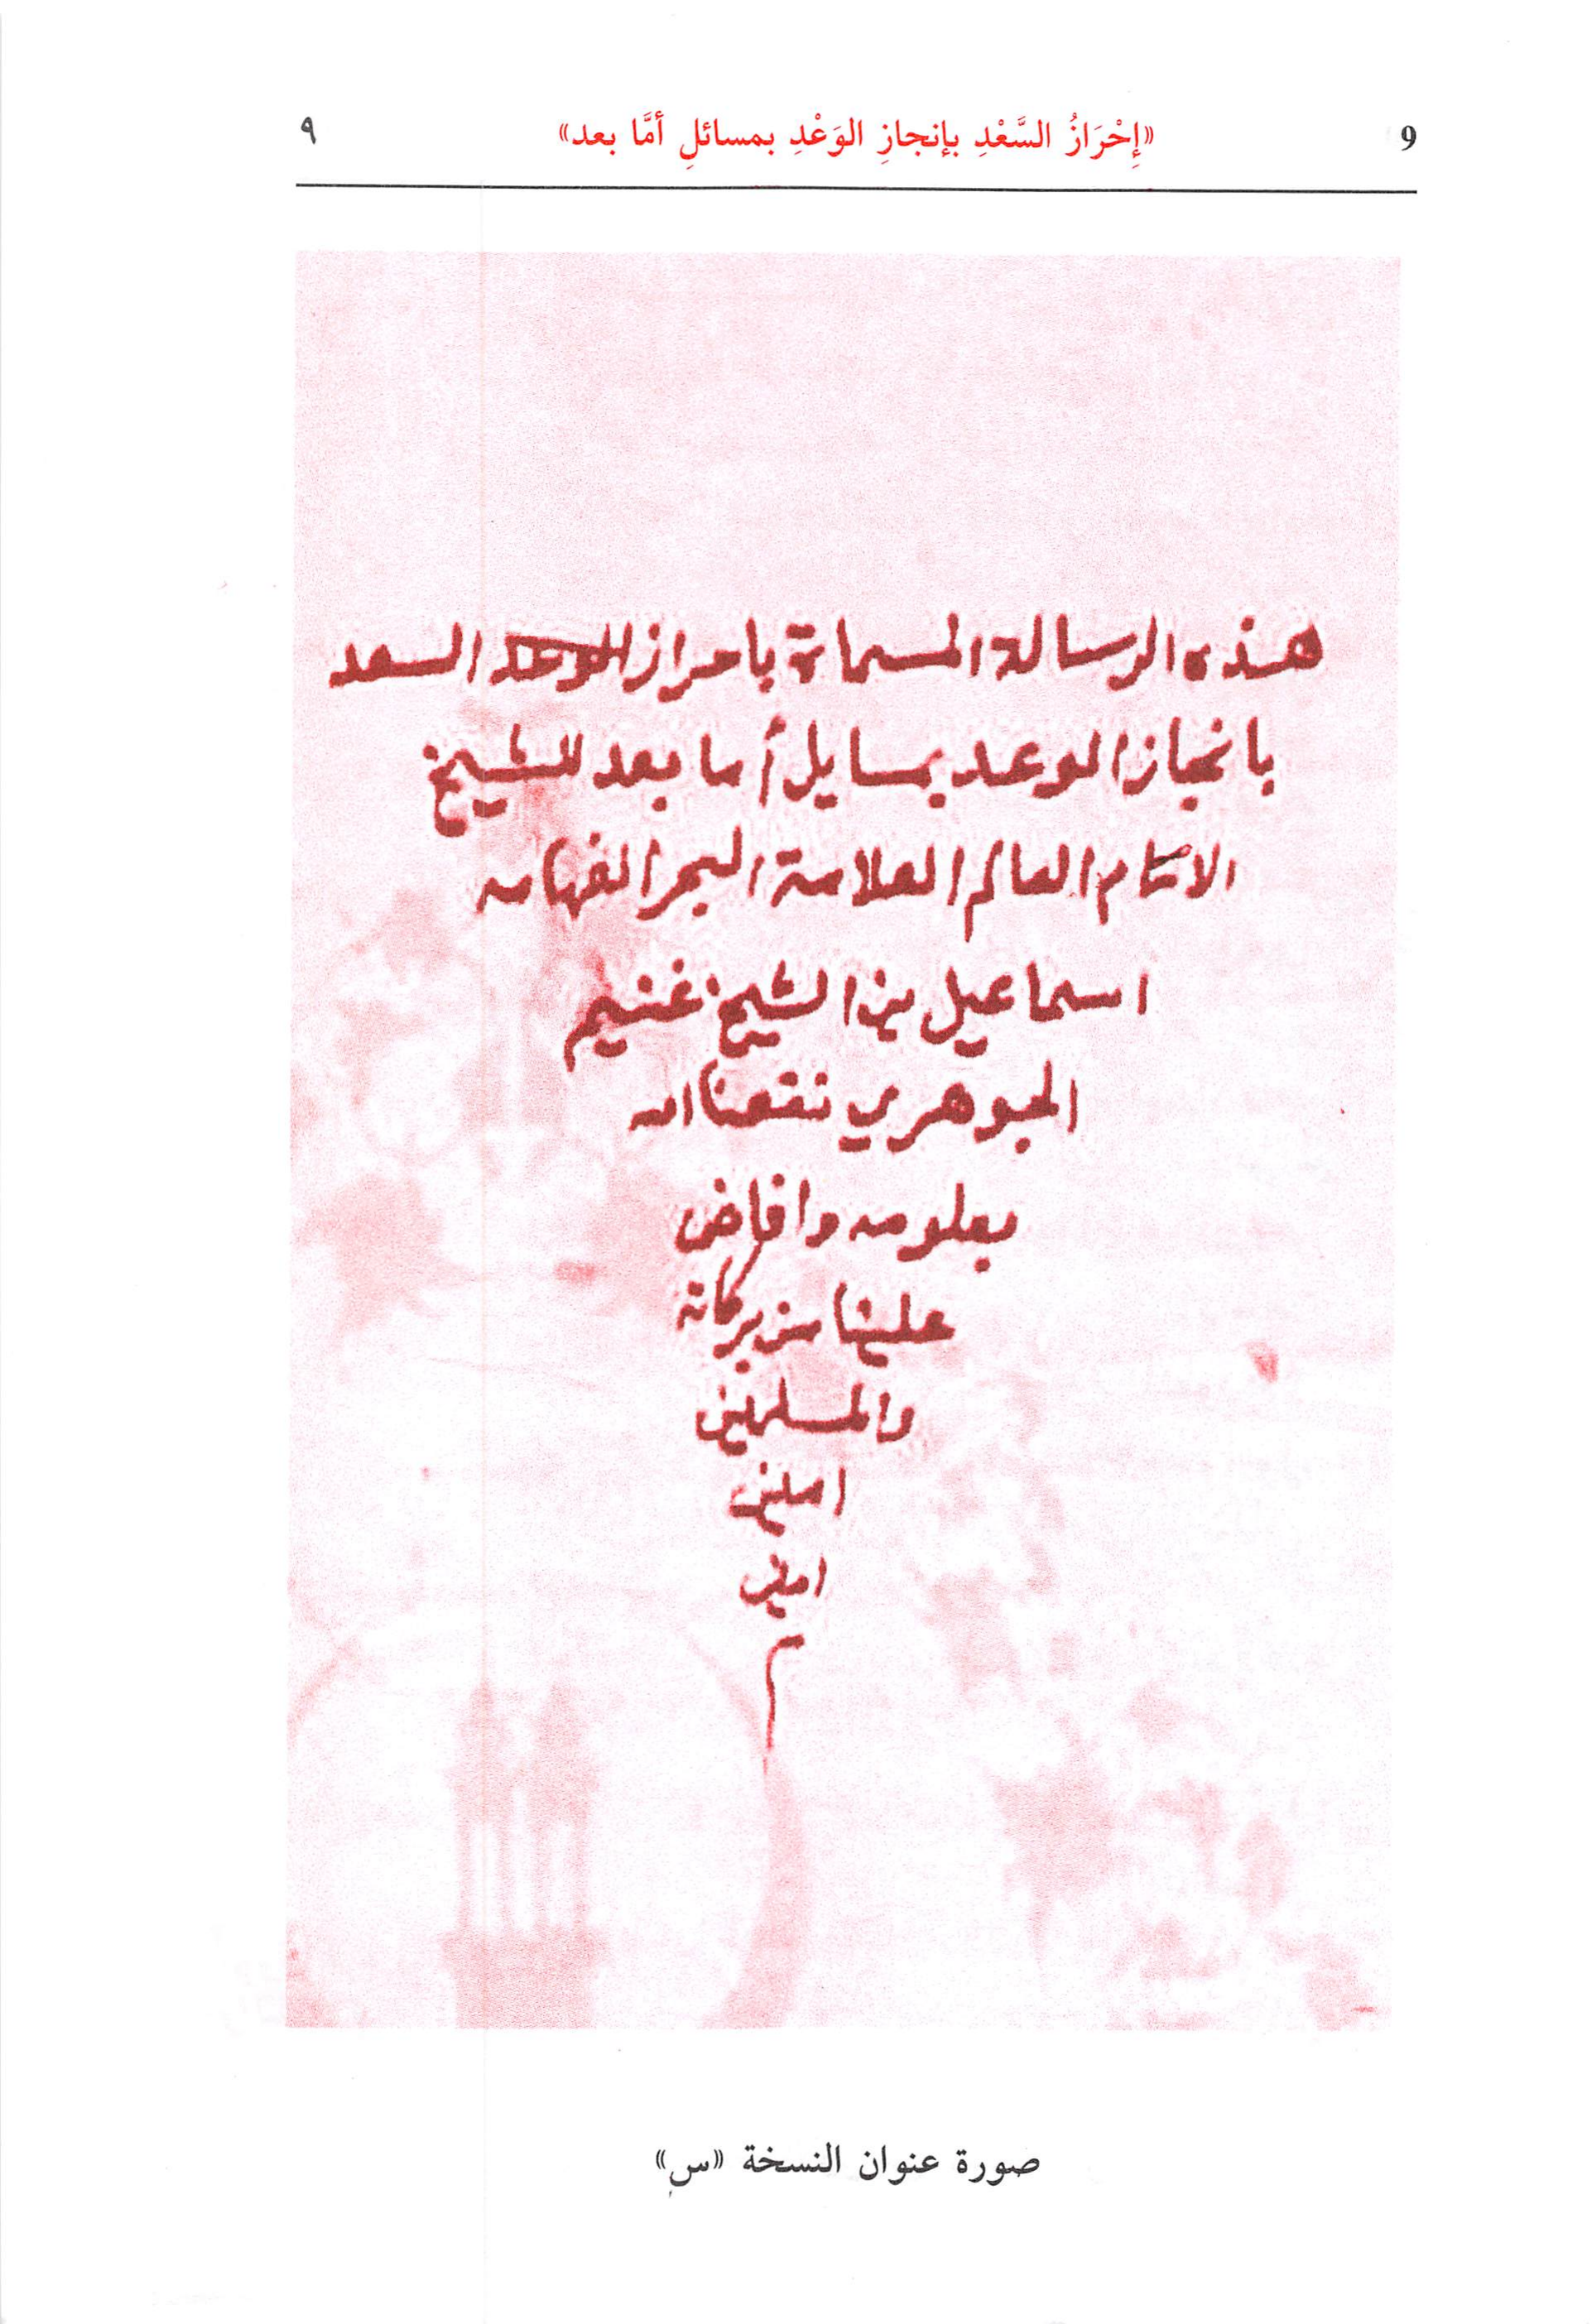 9 «إِحْرَازُ السَّعْدِ بإنجازِ الوَعْدِ بمسائلِ أمَّا بعد» ٩
هذه الرسالة المسماة باحراز السعد
بانجاز الوعد بمسايل أما بعد للشيخ
الامام العالم العلامة البحر الفهامه
اسماعيل بن الشيخ غنيم
الجوهري نفعنا الله
بعلومه وافاض
علينا من بركاته
والمسلمين
امين
امين
م
صورة عنوان النسخة «س»